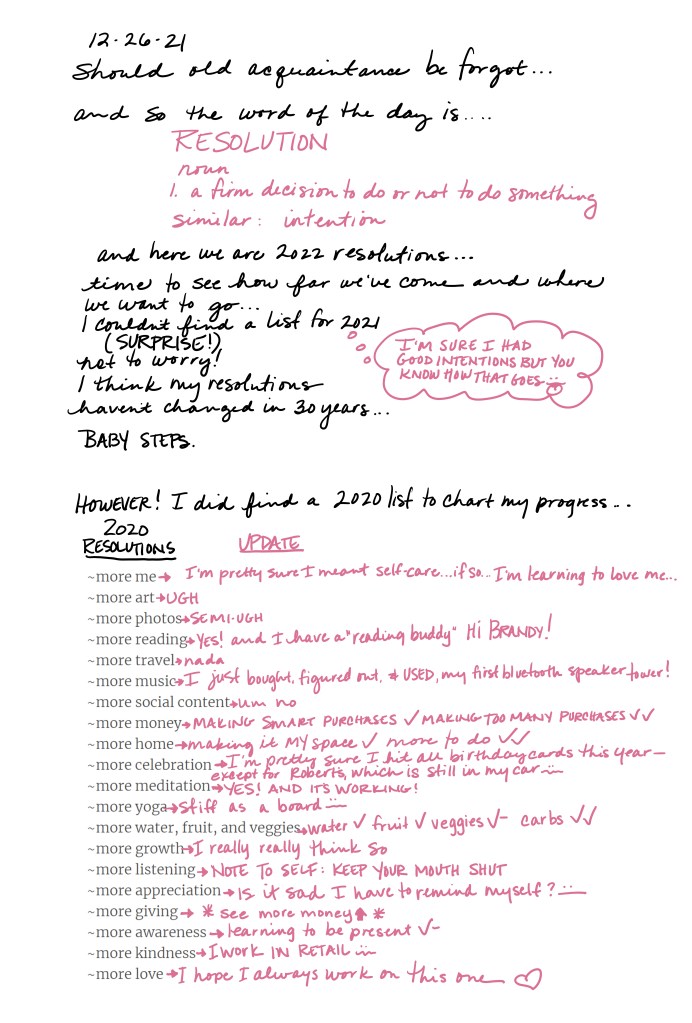 12-26-21
Should old acquaintance be forgot...
and so the word of the day is....
RESOLUTION
noun
1. a firm decision to do or not to do something
similar: intention
and here we are 2022 resolutions...
time to see how far we've come and where
we want to go...
I couldn't find a list for 2021
(SURPRISE!)
not to worry!
I think my resolutions
haven't changed in 30 years...
BABY STEPS.
I'M SURE I HAD
GOOD INTENTIONS BUT YOU
KNOW HOW THAT GOES
HOWEVER! I did find a 2020 list to chart my progress...
2020
RESOLUTIONS UPDATE
~more me→ I'm pretty sure I meant self-care...if so... I'm learning to love me...
~more art→UGH
~more photos→SEMI-UGH
~more reading→YES! and I have a "reading buddy" Hi BRANDY!
~more travel→nada
~more music→I just bought, figured out, & USED, my first bluetooth speaker tower!
~more social content→um no
~more money→MAKING SMART PURCHASES ✓ MAKING TOO MANY PURCHASES ✓✓
~more home→making it MY space ✓ more to do ✓✓
~more celebration→I'm pretty sure I hit all birthday cards this year—
except for Robert's, which is still in my car
~more meditation→YES! AND IT'S WORKING!
~more yoga→stiff as a board
~more water, fruit, and veggies→water ✓ fruit ✓ veggies ✓- carbs ✓✓
~more growth→I really really think so
~more listening→NOTE TO SELF: KEEP YOUR MOUTH SHUT
~more appreciation→Is it sad I have to remind myself?
~more giving→ * see more money↑ *
~more awareness→learning to be present ✓-
~more kindness→I WORK IN RETAIL
~more love→I hope I always work on this one ♡